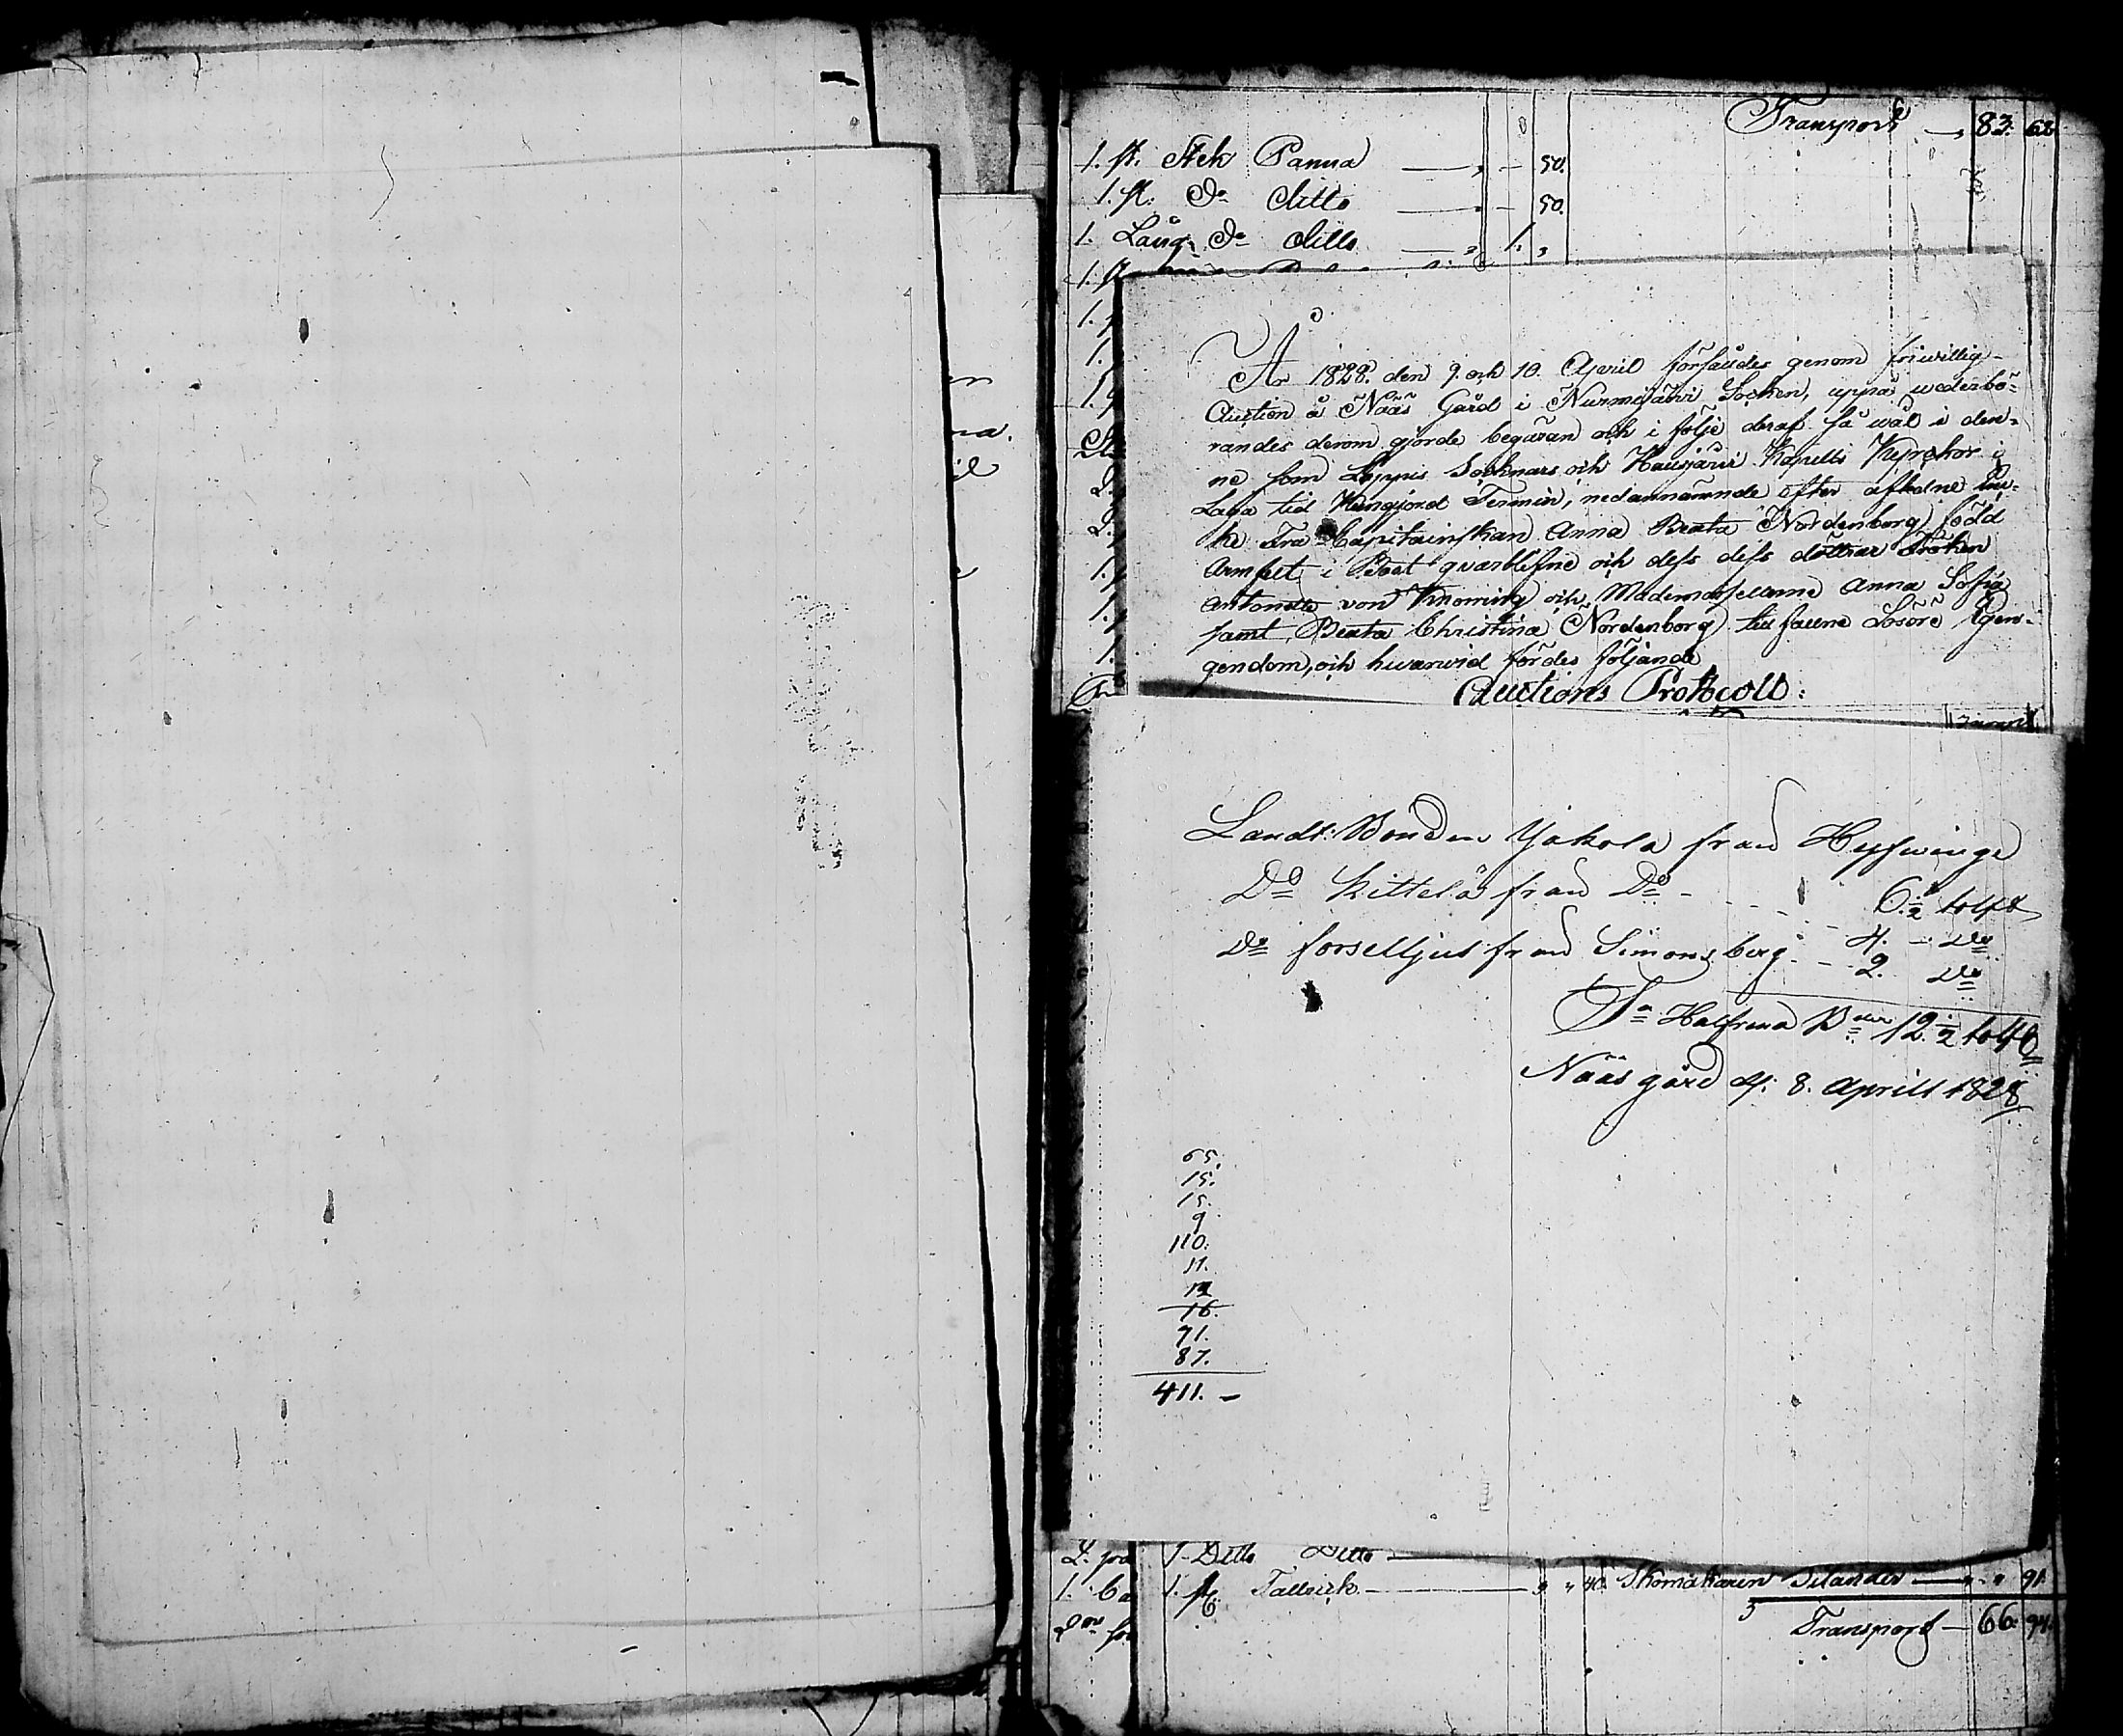 Transport — 83. 68
1. st. Stek Panna — " — 50.
1. st. D:o ditto — " — 50.
1. Lång D:o ditto — " 1. "
År 1828. den 9. och 10. April försåldes genom friwillig
Auction å Nääs Gård i Nurmijärwi Socken, uppå wederbö-
randes derom gjorde begäran och i följe deraf så wäl i den-
ne som Loppis Socknars och Hausjärwi Kapells Kyrckor i
Laga tid Kungjord Termin, nedannämnde efter afledne
ke Fru Capitainskan Anna Beata Nordenborg född
Armfelt i Boet qvarblefne och dess dess döttrar Fröken
Antonette von Knorring och Mademoisellerne Anna Sofia
samt Beata Christina Nordenborg till fallne Lösöre Egen-
gendom, och hwarwid fördes följande
Auctions Protocoll:
Landt: Bonden Yakola från Hyfwinge
6 1/2 tolft
D:o Kittelä från D:o - 4. — D:o
D:o forselljus från Simonsberg - 2. D:o
S:a Halfrena B 12 1/2 tolft
Nääs gård d: 8. Aprill 1828
65.
15.
15.
9
110.
11.
12
16.
71.
87.
411. —
1 Ditto Ditto —
1. st. Tallrick — " " 40. Skomakaren Selander — " " 91.
Transport — 66. 94.